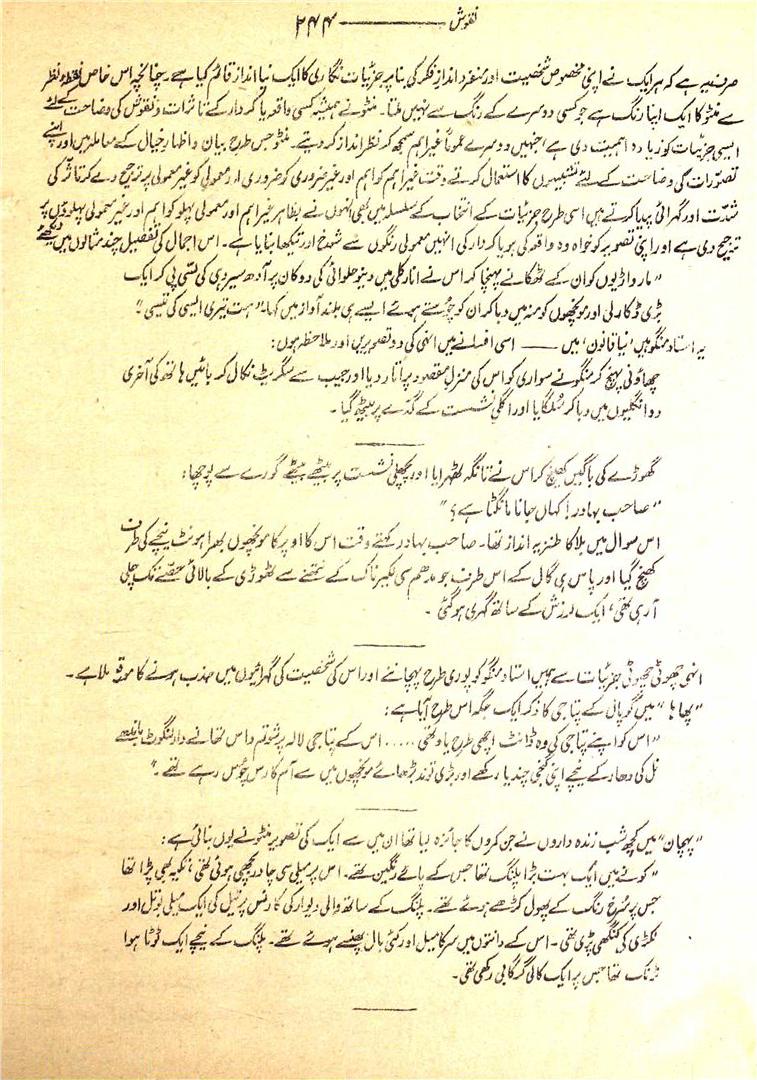 نقوش ——— ۲۴۴
صرف یہ ہے کہ ہر ایک نے اپنی مخصوص شخصیت اور منفرد اندازِ فکر کی بنا پر جزئیات نگاری کا ایک نیا انداز قائم کیا ہے۔ چنانچہ اس خاص نقطۂ نظر
سے منٹو کا ایک اپنا رنگ ہے جو کسی دوسرے کے رنگ سے نہیں ملتا۔ منٹو نے ہمیشہ کسی واقعہ یا کردار کے تاثرات و نقوش کی وضاحت کے لئے
ایسی جزئیات کو زیادہ اہمیت دی ہے، جنہیں دوسرے عموماً غیر اہم سمجھ کر نظر انداز کر دیتے۔ منٹو جس طرح بیان و اظہارِ خیال کے معاملہ میں اور اپنے
تصوّرات کی وضاحت کے لئے تشبیہوں کا استعمال کرتے وقت غیر اہم کو اہم اور غیر ضروری کو ضروری اور معمولی کو غیر معمولی پر ترجیح دے کر تاثر کی
شدّت اور گہرائی پیدا کرتے ہیں اسی طرح جزئیات کے انتخاب کے سلسلہ میں بھی انہوں نے بظاہر غیر اہم اور معمولی پہلو کو اہم اور غیر معمولی پہلوؤں پر
ترجیح دی ہے اور اپنی تصویر کو خواہ وہ واقعہ کی ہو یا کردار کی انہیں معمولی رنگوں سے شوخ اور تیکھا بنایا ہے۔ اس اجمال کی تفصیل چند مثالوں میں دیکھئے
"مارواڑیوں کو ان کے ٹھکانے پہنچا کر اس نے انار کلی میں دینو حلوائی کی دوکان پر آدھ سیر دہی کی لسّی پی کر ایک
بڑی ڈکار لی اور مونچھوں کو منہ میں دبا کر ان کو چوستے ہوئے ایسے ہی بلند آواز میں کہا۔ "ہت تیری ایسی کی تیسی"۔
یہ استاد منگو ہیں 'نیا قانون' میں —— اسی افسانے میں انہی کی دو تصویریں اور ملاحظہ ہوں:
چھاؤنی پہنچ کر منگو نے سواری کو اس کی منزلِ مقصود پر اتار دیا اور جیب سے سگریٹ نکال کر بائیں ہاتھ کی آخری
دو انگلیوں میں دبا کر سُلگایا اور اگلی نشست کے گدّے پر بیٹھ گیا۔
گھوڑے کی باگیں کھینچ کر اس نے تانگہ ٹھہرایا اور پچھلی نشست پر بیٹھے بیٹھے گورے سے پوچھا:
"صاحب بہادر! کہاں جانا مانگتا ہے؟"
اس سوال میں بلا کا طنزیہ انداز تھا۔ صاحب بہادر کہتے وقت اس کا اوپر کا مونچھوں بھرا ہونٹ نیچے کی طرف
کھنچ گیا اور پاس ہی گال کے اس طرف جو مدھم سی لکیر ناک کے نتھنے سے ٹھوڑی کے بالائی حصّے تک چلی
آ رہی تھی، ایک لرزش کے ساتھ گہری ہو گئی۔
انہی چھوٹی چھوٹی جزئیات سے ہمیں استاد منگو کو پوری طرح پہچاننے اور اس کی شخصیت کی گہرائیوں میں جذب ہونے کا موقع ملا ہے۔
"پھاہا" میں گوپال کے پتا جی کا ذکر ایک جگہ اس طرح آیا ہے:
"اس کو اپنے پتا جی کی وہ ڈانٹ اچھی طرح یاد تھی ..... اس کے پتا جی لالہ پرشوتم داس تھانے دار لنگوٹ باندھے
نل کی دھار کے نیچے اپنی گنجی چندیا رکھے اور بڑی توند بڑھائے مونچھوں میں سے آم کا رس چوس رہے تھے۔"
"پہچان" میں کچھ شب زندہ داروں نے جن کمروں کا جائزہ لیا تھا ان میں سے ایک کی تصویر منٹو نے یوں بنائی ہے:
"کونے میں ایک بہت بڑا پلنگ تھا جس کے پائے رنگین تھے۔ اس پر میلی سی چادر بچھی ہوئی تھی، تکیہ بھی پڑا تھا
جس پر سُرخ رنگ کے پھول کڑھے ہوئے تھے۔ پلنگ کے ساتھ والی دیوار کی کارنس پر تیل کی ایک میلی بوتل اور
لکڑی کی کنگھی پڑی تھی۔ اس کے دانتوں میں سر کا میل اور کئی بال پھنسے ہوئے تھے۔ پلنگ کے نیچے ایک ٹوٹا ہوا
ٹرنک تھا جس پر ایک کالی گرگابی رکھی تھی۔